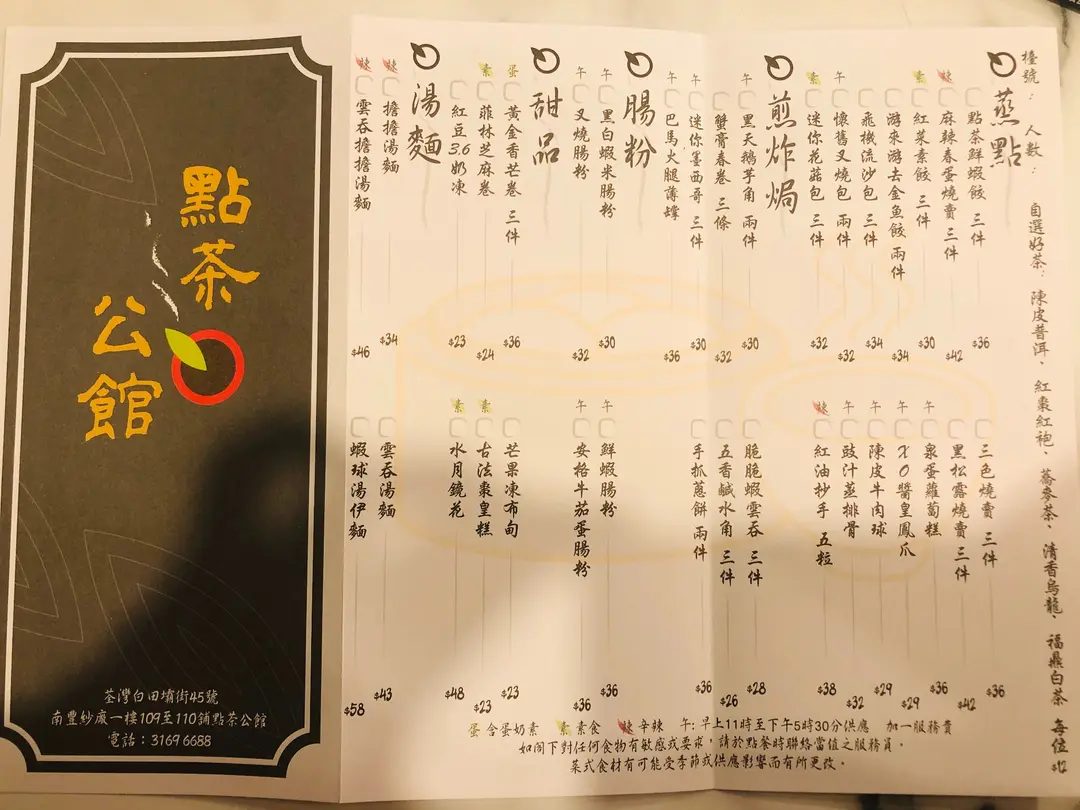 點茶
公館
荃灣白田壩街45號
南豐紗廠一樓109至110舖點茶公館
電話：3169 6688
檯號： 人數： 自選好茶：陳皮普洱、紅棗紅袍、蕎麥茶、清香烏龍、福鼎白茶 每位 $12
蒸點
點茶鮮蝦餃 三件 $36
辣 麻辣春蛋燒賣 三件 $42
素 紅菜素餃 三件 $30
游來游去金魚餃 兩件 $34
飛機流沙包 三件 $34
午 懷舊叉燒包 兩件 $32
素 迷你花菇包 三件 $32
三色燒賣 三件 $36
黑松露燒賣 三件 $42
午 泉蛋蘿蔔糕 $36
午 XO醬皇鳳爪 $29
午 陳皮牛肉球 $29
午 豉汁蒸排骨 $32
辣 紅油抄手 五粒 $38
煎炸焗
午 黑天鵝芋角 兩件 $30
蟹膏春卷 三條 $32
午 迷你墨西哥 三件 $30
午 巴馬火腿薄罉 $36
脆脆蝦雲吞 三件 $28
五香鹹水角 三件 $26
手抓蔥餅 兩件 $36
腸粉
午 黑白蝦米腸粉 $30
午 叉燒腸粉 $32
午 鮮蝦腸粉 $36
午 安格牛茄蛋腸粉 $36
甜品
蛋 黃金香芒卷 三件 $36
素 菲林芝麻卷 $24
紅豆3.6奶凍 $23
芒果凍布甸 $23
素 古法棗皇糕 $23
素 水月鏡花 $48
湯麵
辣 擔擔湯麵 $34
辣 雲吞擔擔湯麵 $46
雲吞湯麵 $43
蝦球湯伊麵 $58
蛋 含蛋奶素 素 素食 辣 辛辣 午：早上11時至下午5時30分供應 加一服務費
如閣下對任何食物有敏感或要求，請於點餐時聯絡當值之服務員。
菜式食材有可能受季節或供應影響而有所更改。